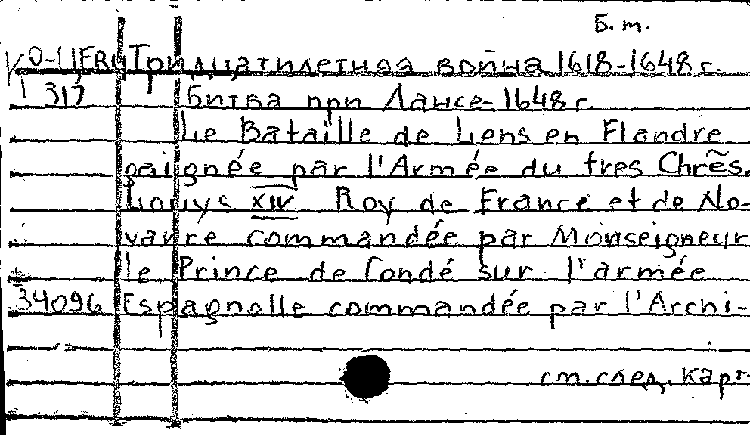 Б.т.
Тридцатилетная война 1618-1648 г.
317 Битва при Лансе - 1648 г.
Le Bataille de Lens en Flandre
gaignée par l'Armée du tres Chrẽs.
Louys XIV Roy de France et de No-
varre commandée par Monseigneur
le Prince de Condé sur l'armée
34096 Espagnolle commandée par l'Archi-
см. след. карт